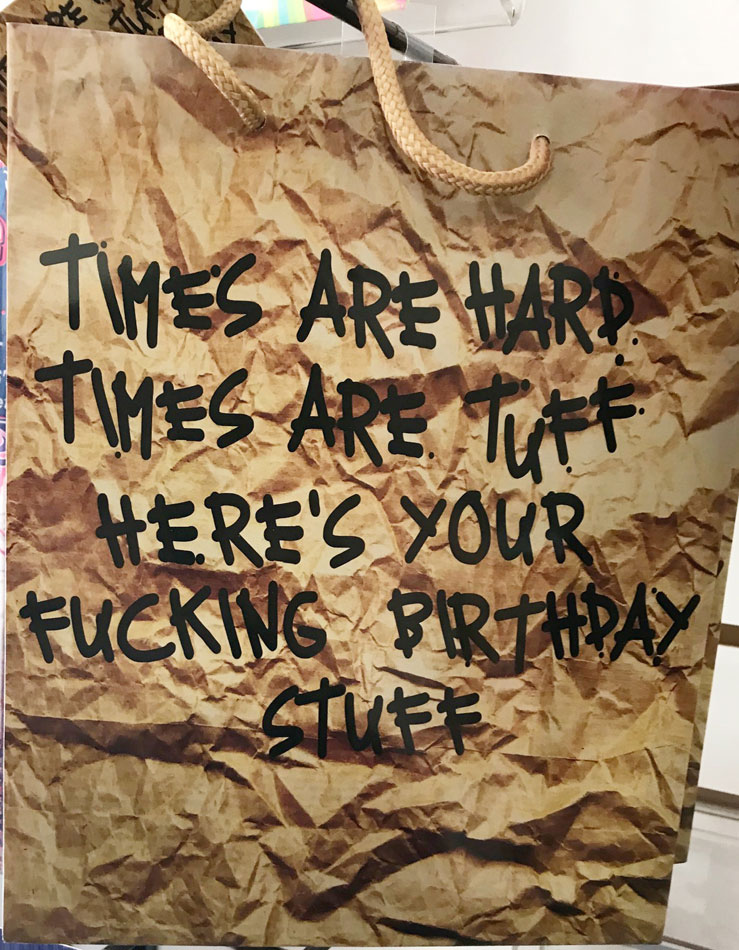 TIMES ARE HARD.
TIMES ARE TUFF.
HERE'S YOUR
FUCKING BIRTHDAY
STUFF